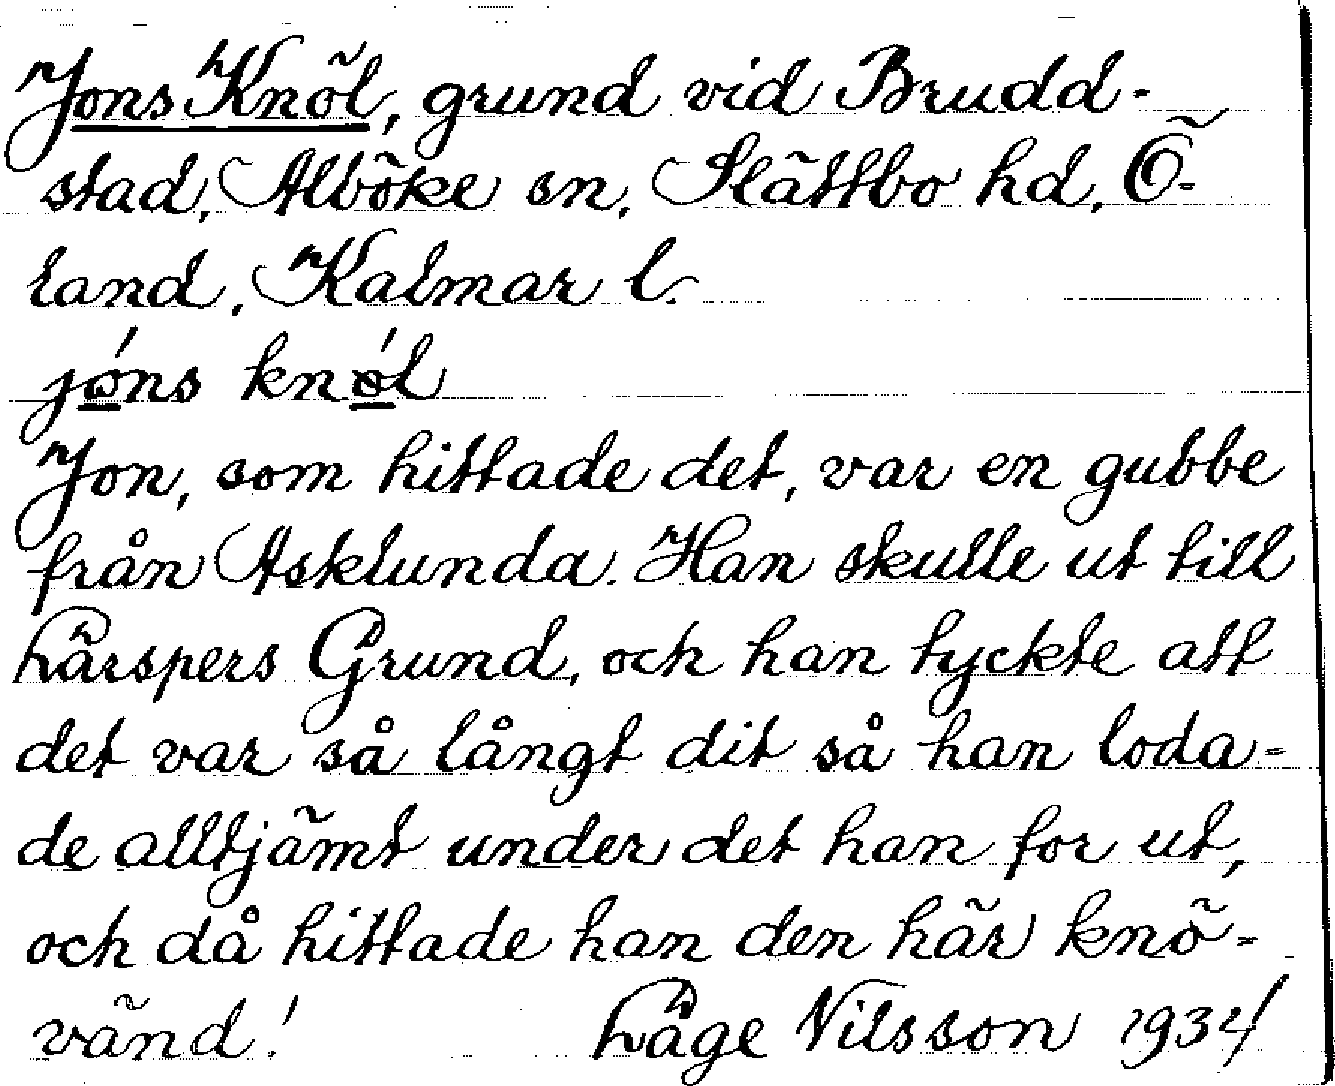 Jons Knöl, grund vid Brudd-
stad, Alböke sn, Slättbo hd, Ö-
land, Kalmar l.
jóns knǿl
Jon, som hittade det, var en gubbe
från Asklunda. Han skulle ut till
Grund, och han tyckte att
det var så långt dit så han loda-
de alltjämt under det han for ut,
och då hittade han den här knö-
vänd! Nilsson 1934